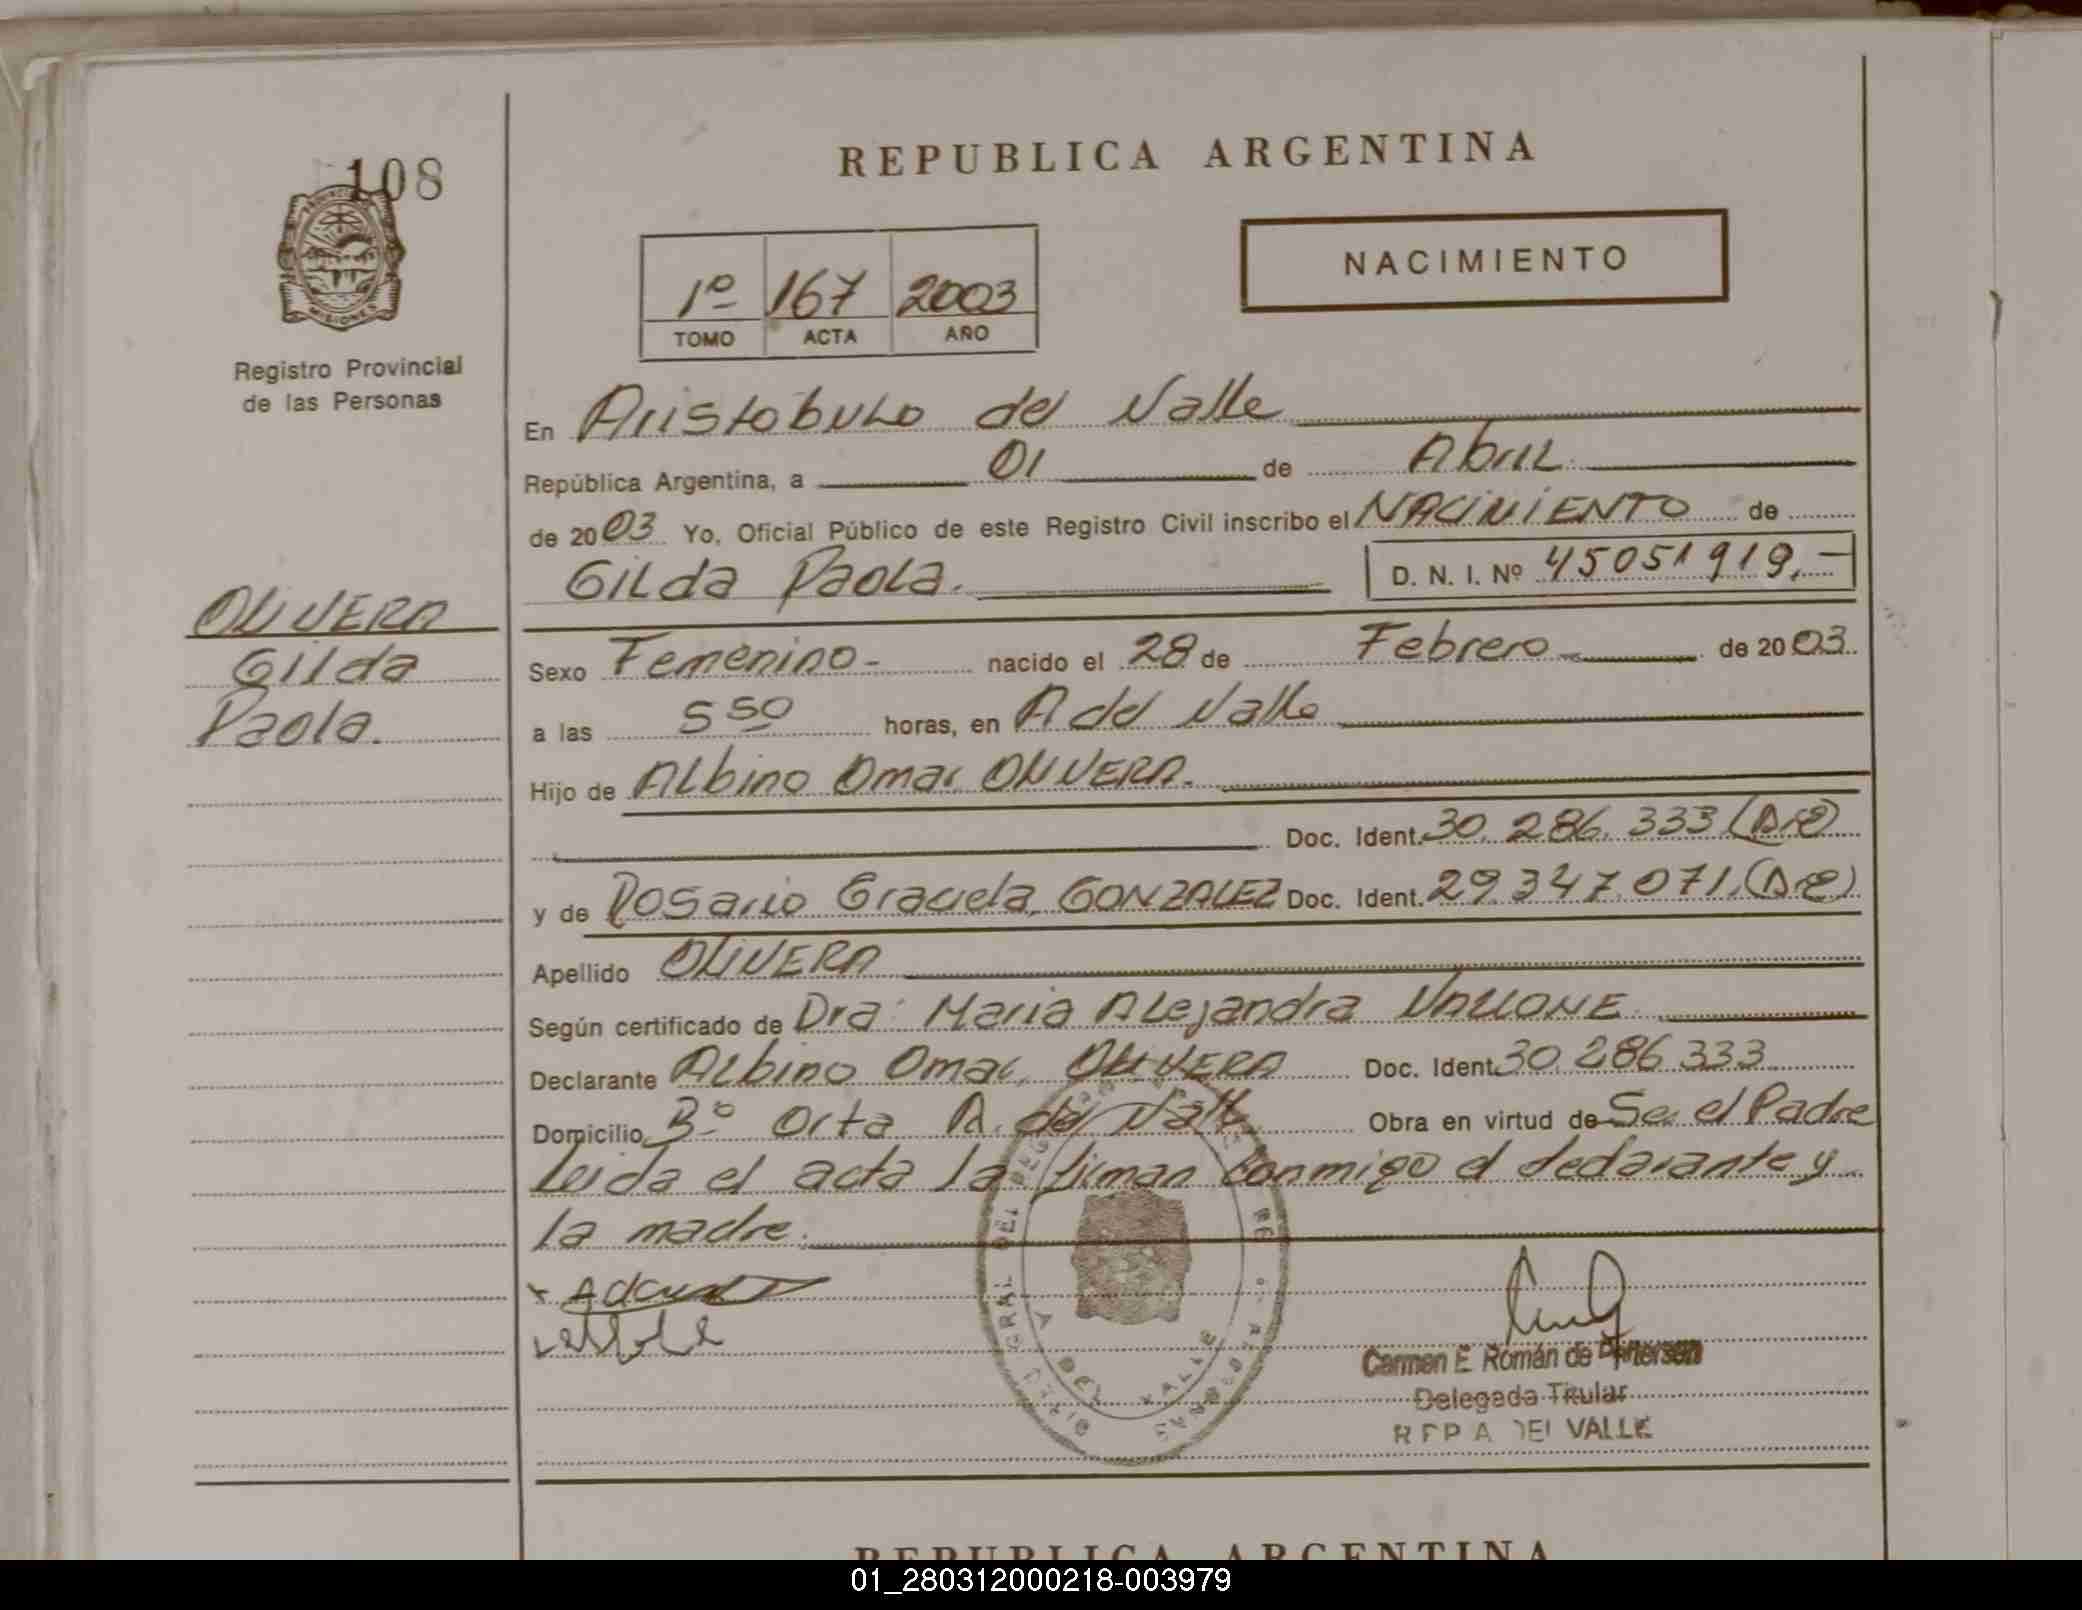 108
REPUBLICA ARGENTINA
NACIMIENTO
1º 167 2003
TOMO ACTA AÑO
MISIONES
Registro Provincial
de las Personas
En Aristobulo del Valle
República Argentina, a 01 de Abril
de 2003 Yo, Oficial Público de este Registro Civil inscribo el NACIMIENTO de
Gilda Paola. D. N. I. Nº 45051919.-
OLIVERA
Gilda
Paola.
Sexo Femenino- nacido el 28 de Febrero de 2003.
a las 5 50 horas, en A del Valle
Hijo de Albino Omar OLIVERA.
Doc. Ident. 30.286.333
y de Rosario Graciela GONZALEZ Doc. Ident. 29.347.071.
Apellido OLIVERA
Según certificado de Dra Maria Alejandra VALLONE
Declarante Albino Omar OLIVERA Doc. Ident. 30.286.333
Domicilio Bº Orta A. del Valle Obra en virtud de Ser el Padre
Leida el acta la firman conmigo el declarante y
la madre.
DEL VALLE
Carmen E. Román de Pettersen
Delegada Titular
R P P A DEL VALLE
REPUBLICA ARGENTINA
01_280312000218-003979